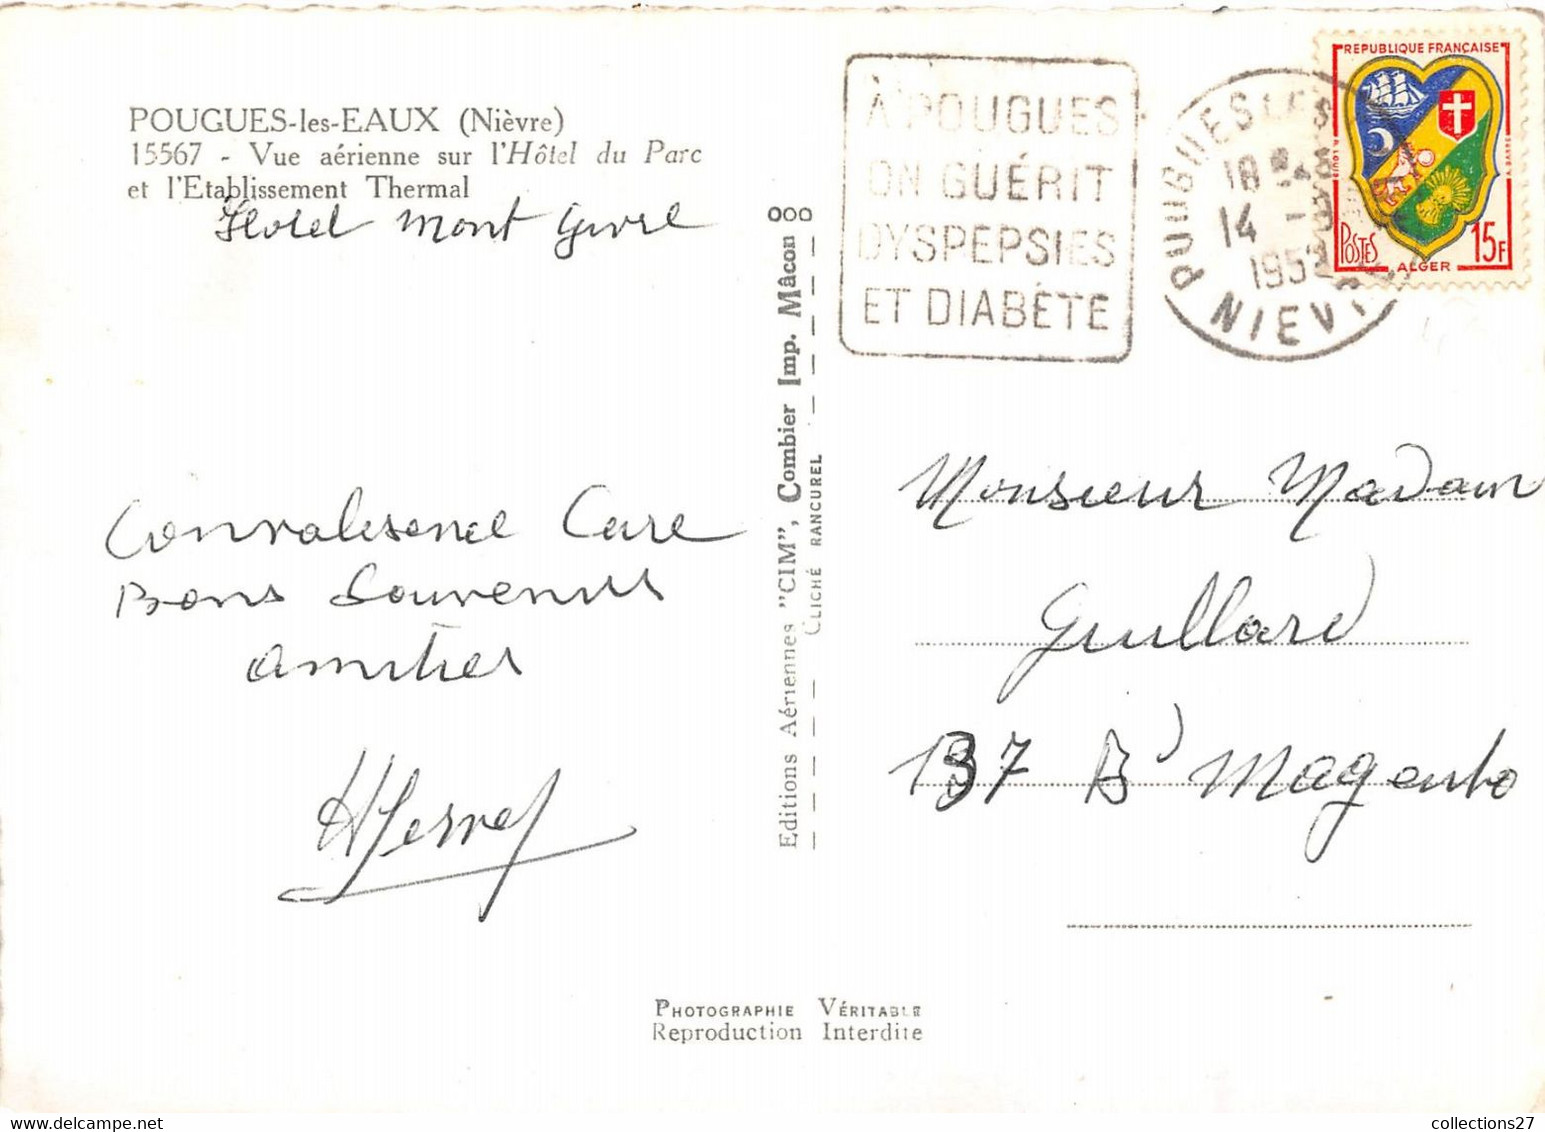 POUGUES-les-EAUX (Nièvre)
15567 - Vue aérienne sur l'Hôtel du Parc
et l'Etablissement Thermal
Hotel Mont Givre
Convalesence Cure
Bons Souvenirs
amities
Editions Aériennes "CIM", Combier Imp. Mâcon
CLICHÉ RANCUREL
À POUGUES
ON GUÉRIT
DYSPEPSIES
ET DIABÈTE
POUGUES LES
18
14
NIEVRE
REPUBLIQUE FRANÇAISE
POSTES
ALGER
15F
Monsieur Madam
Guillard
137 Bd Magenta
PHOTOGRAPHIE VÉRITABLE
Reproduction Interdite
collections27